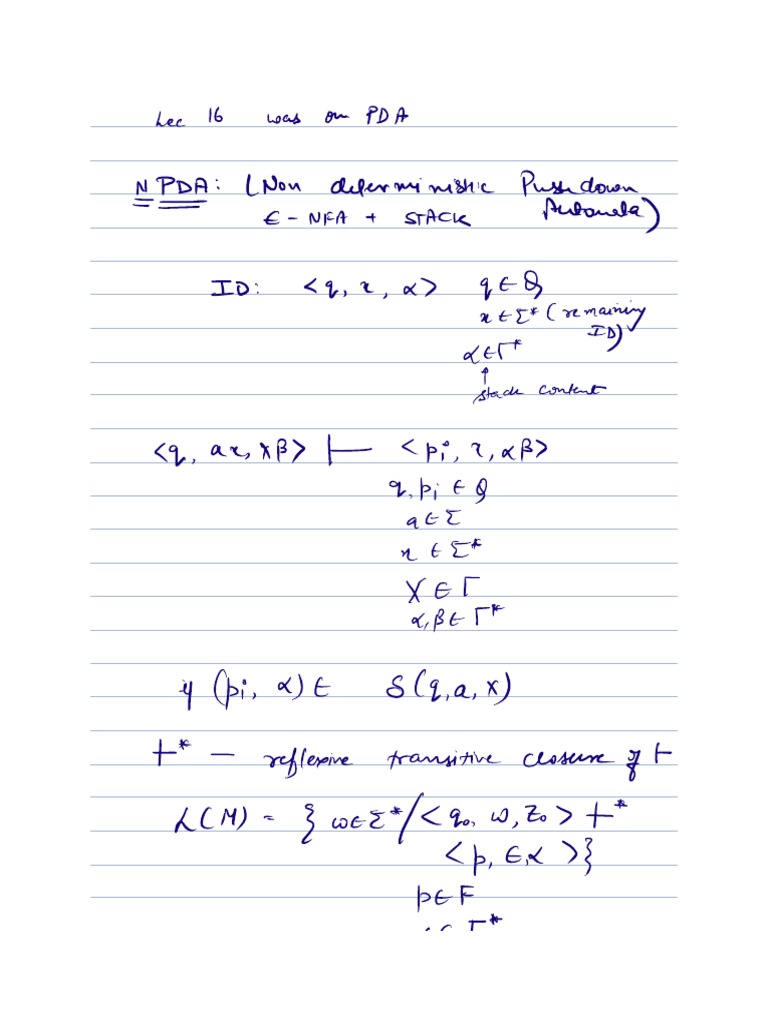 Lec 16 was on PDA
NPDA: (Non deterministic Pushdown Automata)
ϵ - NFA + STACK
ID: <q, x, α> q ∈ Q
x ∈ Σ* (remaining ID)
α ∈ Γ*
↑
stack content
<q, ax, Xβ> ⊢ <pi, x, αβ>
q, pi ∈ Q
a ∈ Σ
x ∈ Σ*
X ∈ Γ
α, β ∈ Γ*
if (pi, α) ∈ δ(q, a, X)
⊢* — reflexive transitive closure of ⊢
L(M) = { w ∈ Σ* / <q0, w, Z0> ⊢*
<p, ϵ, α >}
p ∈ F